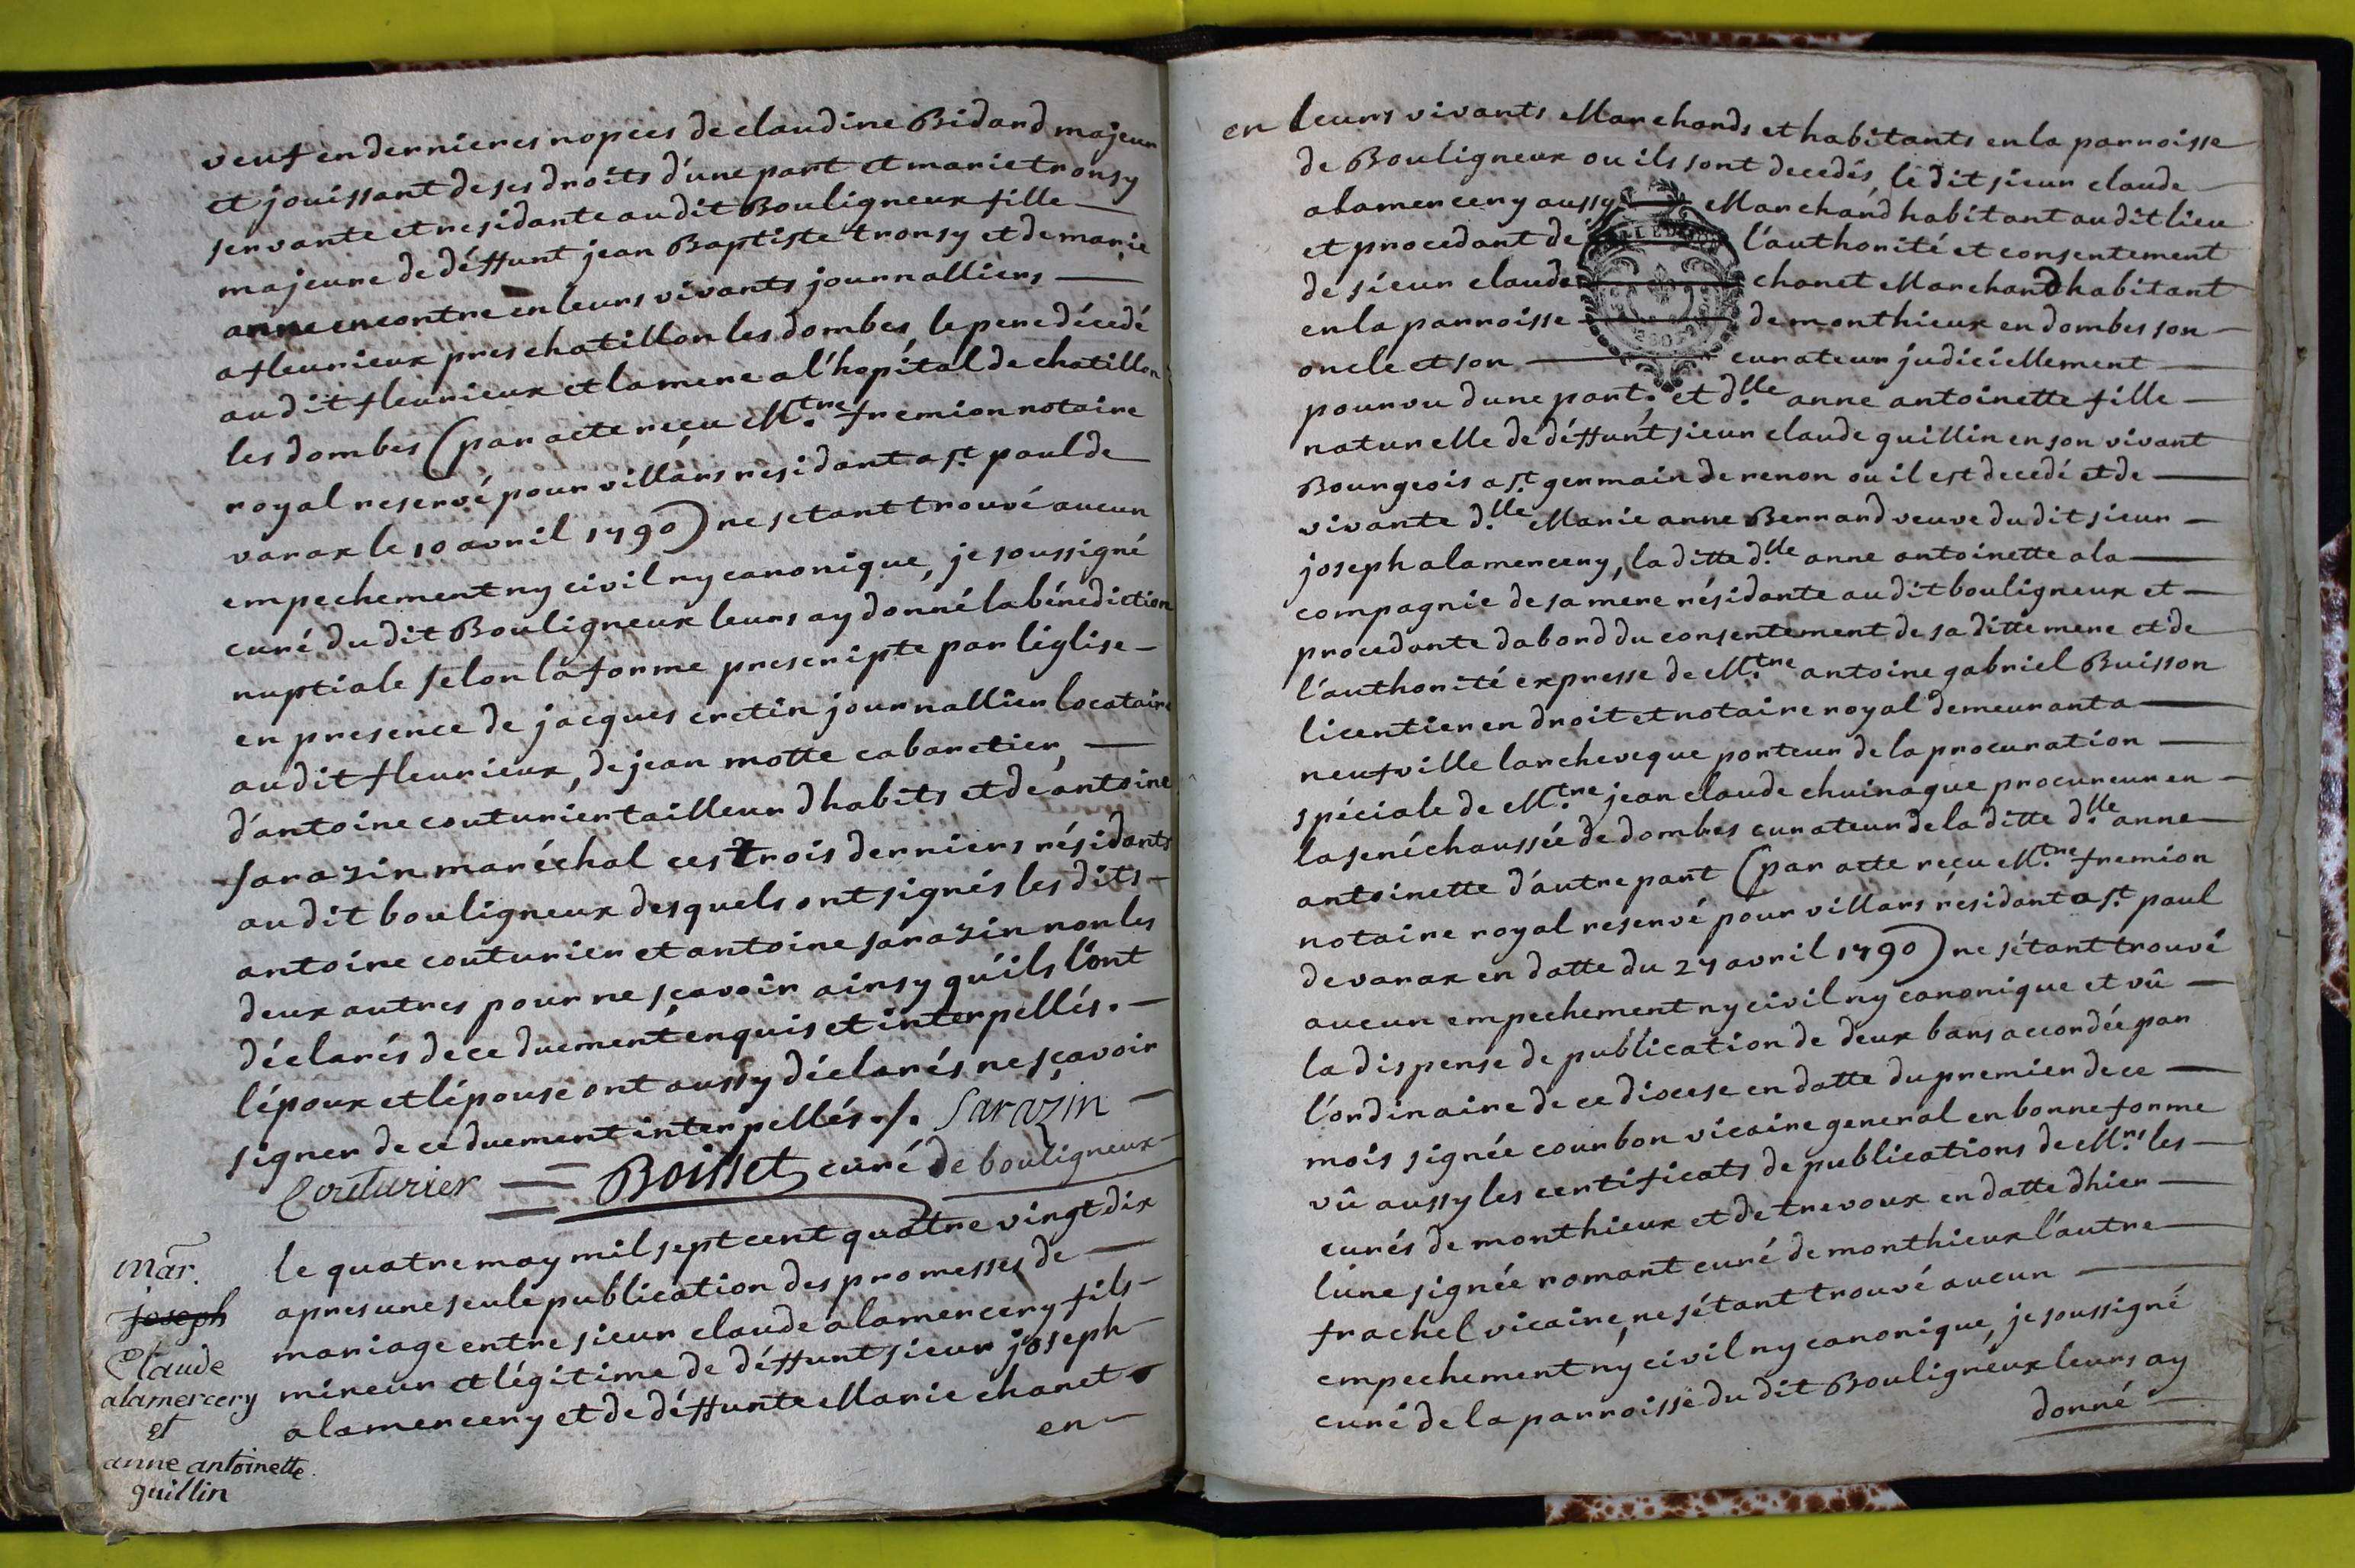 veuf en dernieres nopces de claudine Bidard majeur
et jouissant de ses droits d'une part et marie tronsy
servante et residante au dit Bouligneux fille —
majeure de déffunt jean Baptiste tronsy et de marie
anne encontre en leurs vivants journalliers —
a fleurieux pres chatillon les dombes, le pere décedé
au dit fleurieux et la mere a l'hopital de chatillon
les dombes (par acte reçu M.tre fremion notaire
royal reservé pour villars residant a st. paul de
varax le 10 avril 1790) ne setant trouvé aucun
empechement ny civil ny canonique, je soussigné
curé du dit Bouligneux leurs ay donné la bénediction
nuptiale selon la forme prescripte par léglise —
en presence de jacques cretin journallier locataire
au dit fleurieux, de jean motte cabaretier, —
d'antoine couturier tailleur dhabits et de antoine
sarazin maréchal ces trois derniers résidants
au dit bouligneux desquels ont signés les dits —
antoine couturier et antoine sarazin non les
deux autres pour ne sçavoir ainsy qu'ils l'ont
déclarés de ce duement enquis et interpellés. —
lépoux et lépouse ont aussy déclarés ne sçavoir
signer de ce duement interpellés ./. Sarazin —
Couturier = Boisset curé de bouligneux
mar.
joseph
Claude
alamercery
et
anne antoinette
guillin
le quatre may mil sept cent quatre vingt dix
apres une seule publication des promesses de —
mariage entre sieur claude alamercery fils —
mineur et légitime de déffunt sieur joseph —
alamercery et de déffunte Marie chanet
en —
en leurs vivants Marchands et habitants en la parroisse
de Bouligneux ou ils sont decedés, le dit sieur claude —
alamercery aussy — Marchand habitant au dit lieu
et procedant de l'authorité et consentement
de sieur claude — chanet Marchand habitant
en la parroisse — de monthieux en dombes son —
oncle et son — curateur judiciellement —
pourvu dune part; et d.lle anne antoinette fille —
naturelle de déffunt sieur claude guillin en son vivant
Bourgeois a st. germain de renon ou il est decedé et de —
vivante d.lle Marie anne Bernard veuve du dit sieur —
joseph alamercery, la ditte d.lle anne antoinette a la —
compagnie de sa mere résidante au dit bouligneux et —
procedante dabord du consentement de sa ditte mere et de
l'authorité expresse de M.tre antoine gabriel Buisson
licentier en droit et notaire royal demeurant a —
neufville larcheveque porteur de la procuration —
spéciale de M.tre jean claude chuinague procureur en —
la sénéchaussée de dombes curateur de la ditte d.lle anne
antoinette d'autre part (par acte reçu M.tre fremion
notaire royal reservé pour villars résidant a st. paul
de varax en datte du 27 avril 1790) ne s'étant trouvé
aucun empechement ny civil ny canonique et vû —
la dispense de publication de deux bans accordée par
l'ordinaire de ce diocese en datte du premier de ce —
mois signée courbon vicaire general en bonne forme
vû aussy les certificats de publications de Mrs. les —
curés de monthieux et de trevoux en datte dhier —
l'une signée romant curé de monthieux l'autre —
frachel vicaire, ne s'étant trouvé aucun —
empechement ny civil ny canonique, je soussigné
curé de la parroisse du dit Bouligneux leurs ay
donné —